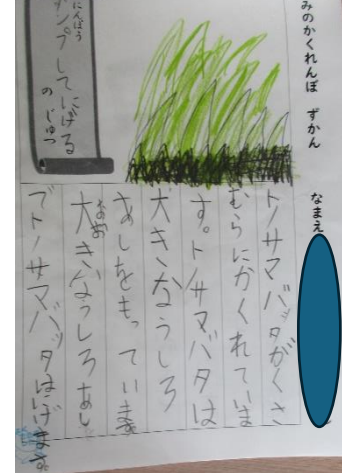 みのかくれんぼ ずかん なまえ
にんぽう
ャンプしてにげる
のじゅつ
トノサマバッタがくさ
むらにかくれていま
す。トノサマバタは
大きなうしろ
あしをもっています
大きなうしろあし
でトノサマバッタはにげます。